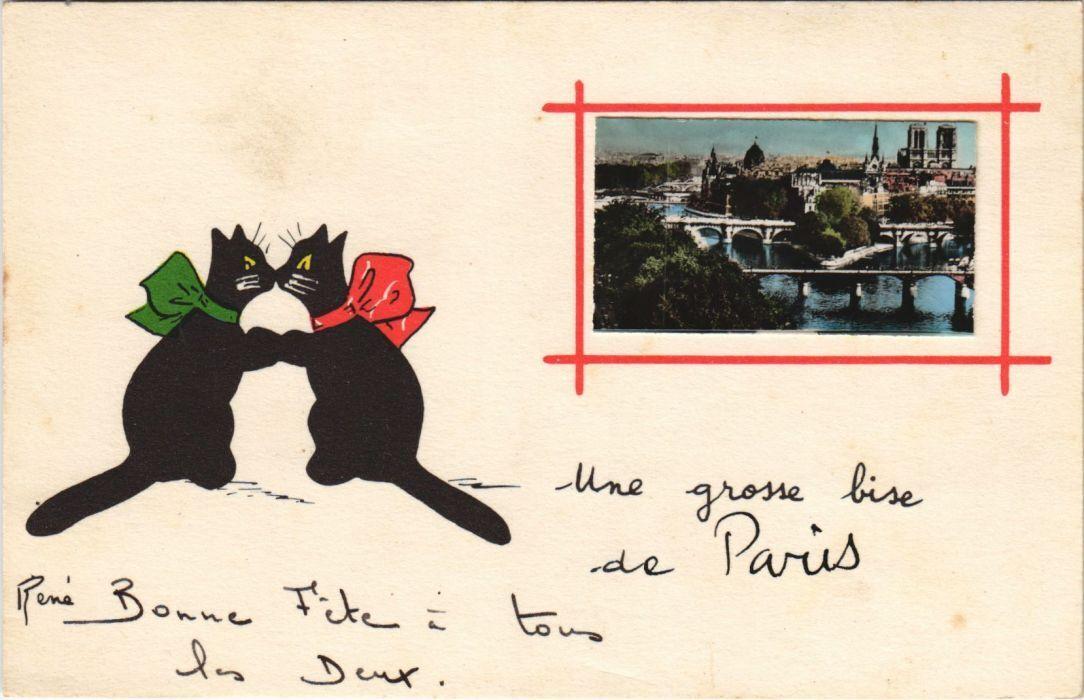 Une grosse bise
de Paris
René Bonne Fête à tous
les Deux.